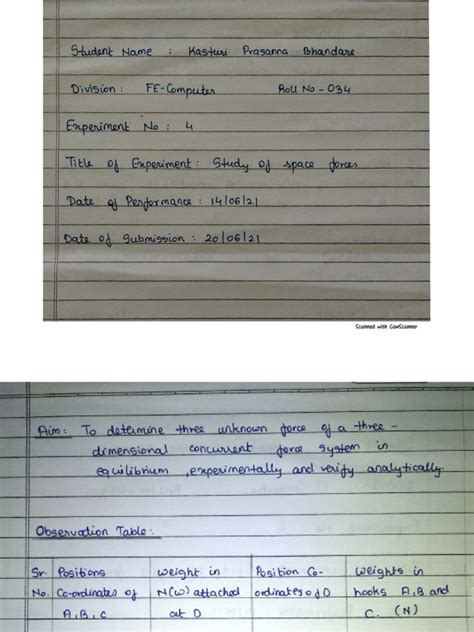 Student Name : Kasturi Prasanna Bhandare
Division : FE-Computer Roll No - 034
Experiment No : 4
Title of Experiment : Study of space forces
Date of Performance : 14/06/21
Date of Submission : 20/06/21
Scanned with CamScanner
Aim : To determine three unknown force of a three -
dimensional concurrent force system in
equilibrium , experimentally and verify analytically.
Observation Table :
Sr Positions weight in Position Co- weights in
No. Co-ordinates of N(w) attached ordinates of D hooks A, B and
A, B, C at D C. (N)